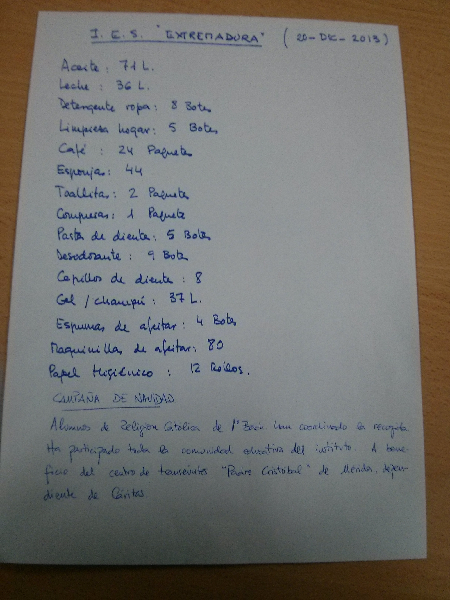 I. E. S. "EXTREMADURA" (20-DIC-2013)
Aceite: 71 L.
Leche: 36 L.
Detergente ropa: 8 Botes
Limpieza hogar: 5 Botes
Café: 24 Paquetes
Esponjas: 44
Toallitas: 2 Paquetes
Compresas: 1 Paquete
Pasta de diente: 5 Botes
Desodorante: 9 Botes
Cepillos de diente: 8
Gel / champú: 37 L.
Espumas de afeitar: 4 Botes
Maquinillas de afeitar: 80
Papel Higiénico: 12 Rollos.
CAMPAÑA DE NAVIDAD
Alumnos de Religión Católica de 1º Bach. han coordinado la recogida.
Ha participado toda la comunidad educativa del instituto. A bene-
ficio del centro de transeúntes "Padre Cristóbal" de Mérida, depen-
diente de Cáritas